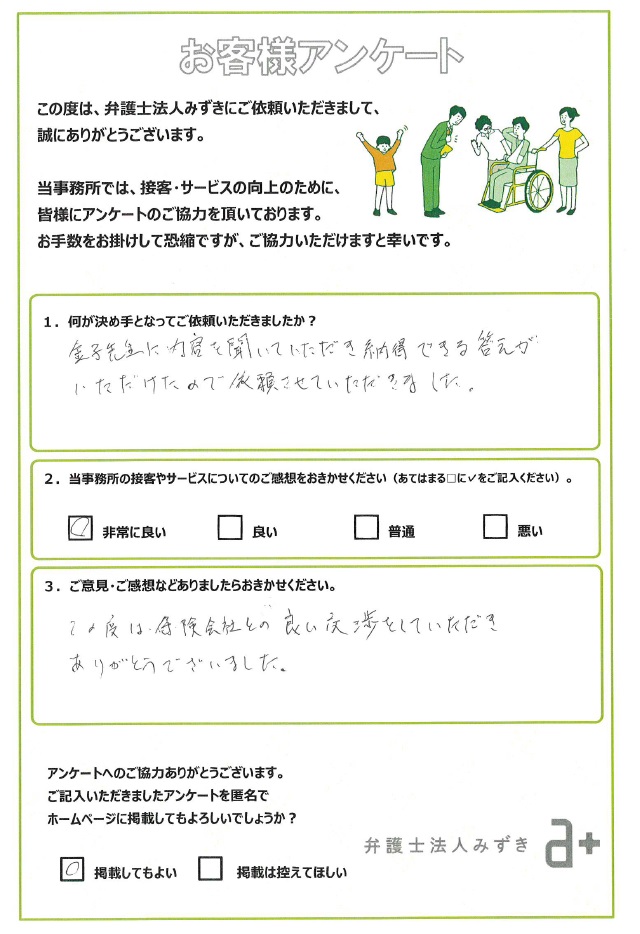 お客様アンケート
この度は、弁護士法人みずきにご依頼いただきまして、
誠にありがとうございます。
当事務所では、接客・サービスの向上のために、
皆様にアンケートのご協力を頂いております。
お手数をお掛けして恐縮ですが、ご協力いただけますと幸いです。
1．何が決め手となってご依頼いただきましたか？
金子先生に内容を聞いていただき納得できる答えが
いただけたので依頼させていただきました。
2．当事務所の接客やサービスについてのご感想をおきかせください（あてはまる□に✓をご記入ください）。
非常に良い 良い 普通 悪い
3．ご意見・ご感想などありましたらおきかせください。
この度は、保険会社との良い交渉をしていただき
ありがとうございました。
アンケートへのご協力ありがとうございます。
ご記入いただきましたアンケートを匿名で
ホームページに掲載してもよろしいでしょうか？
弁護士法人みずき a+
掲載してもよい 掲載は控えてほしい